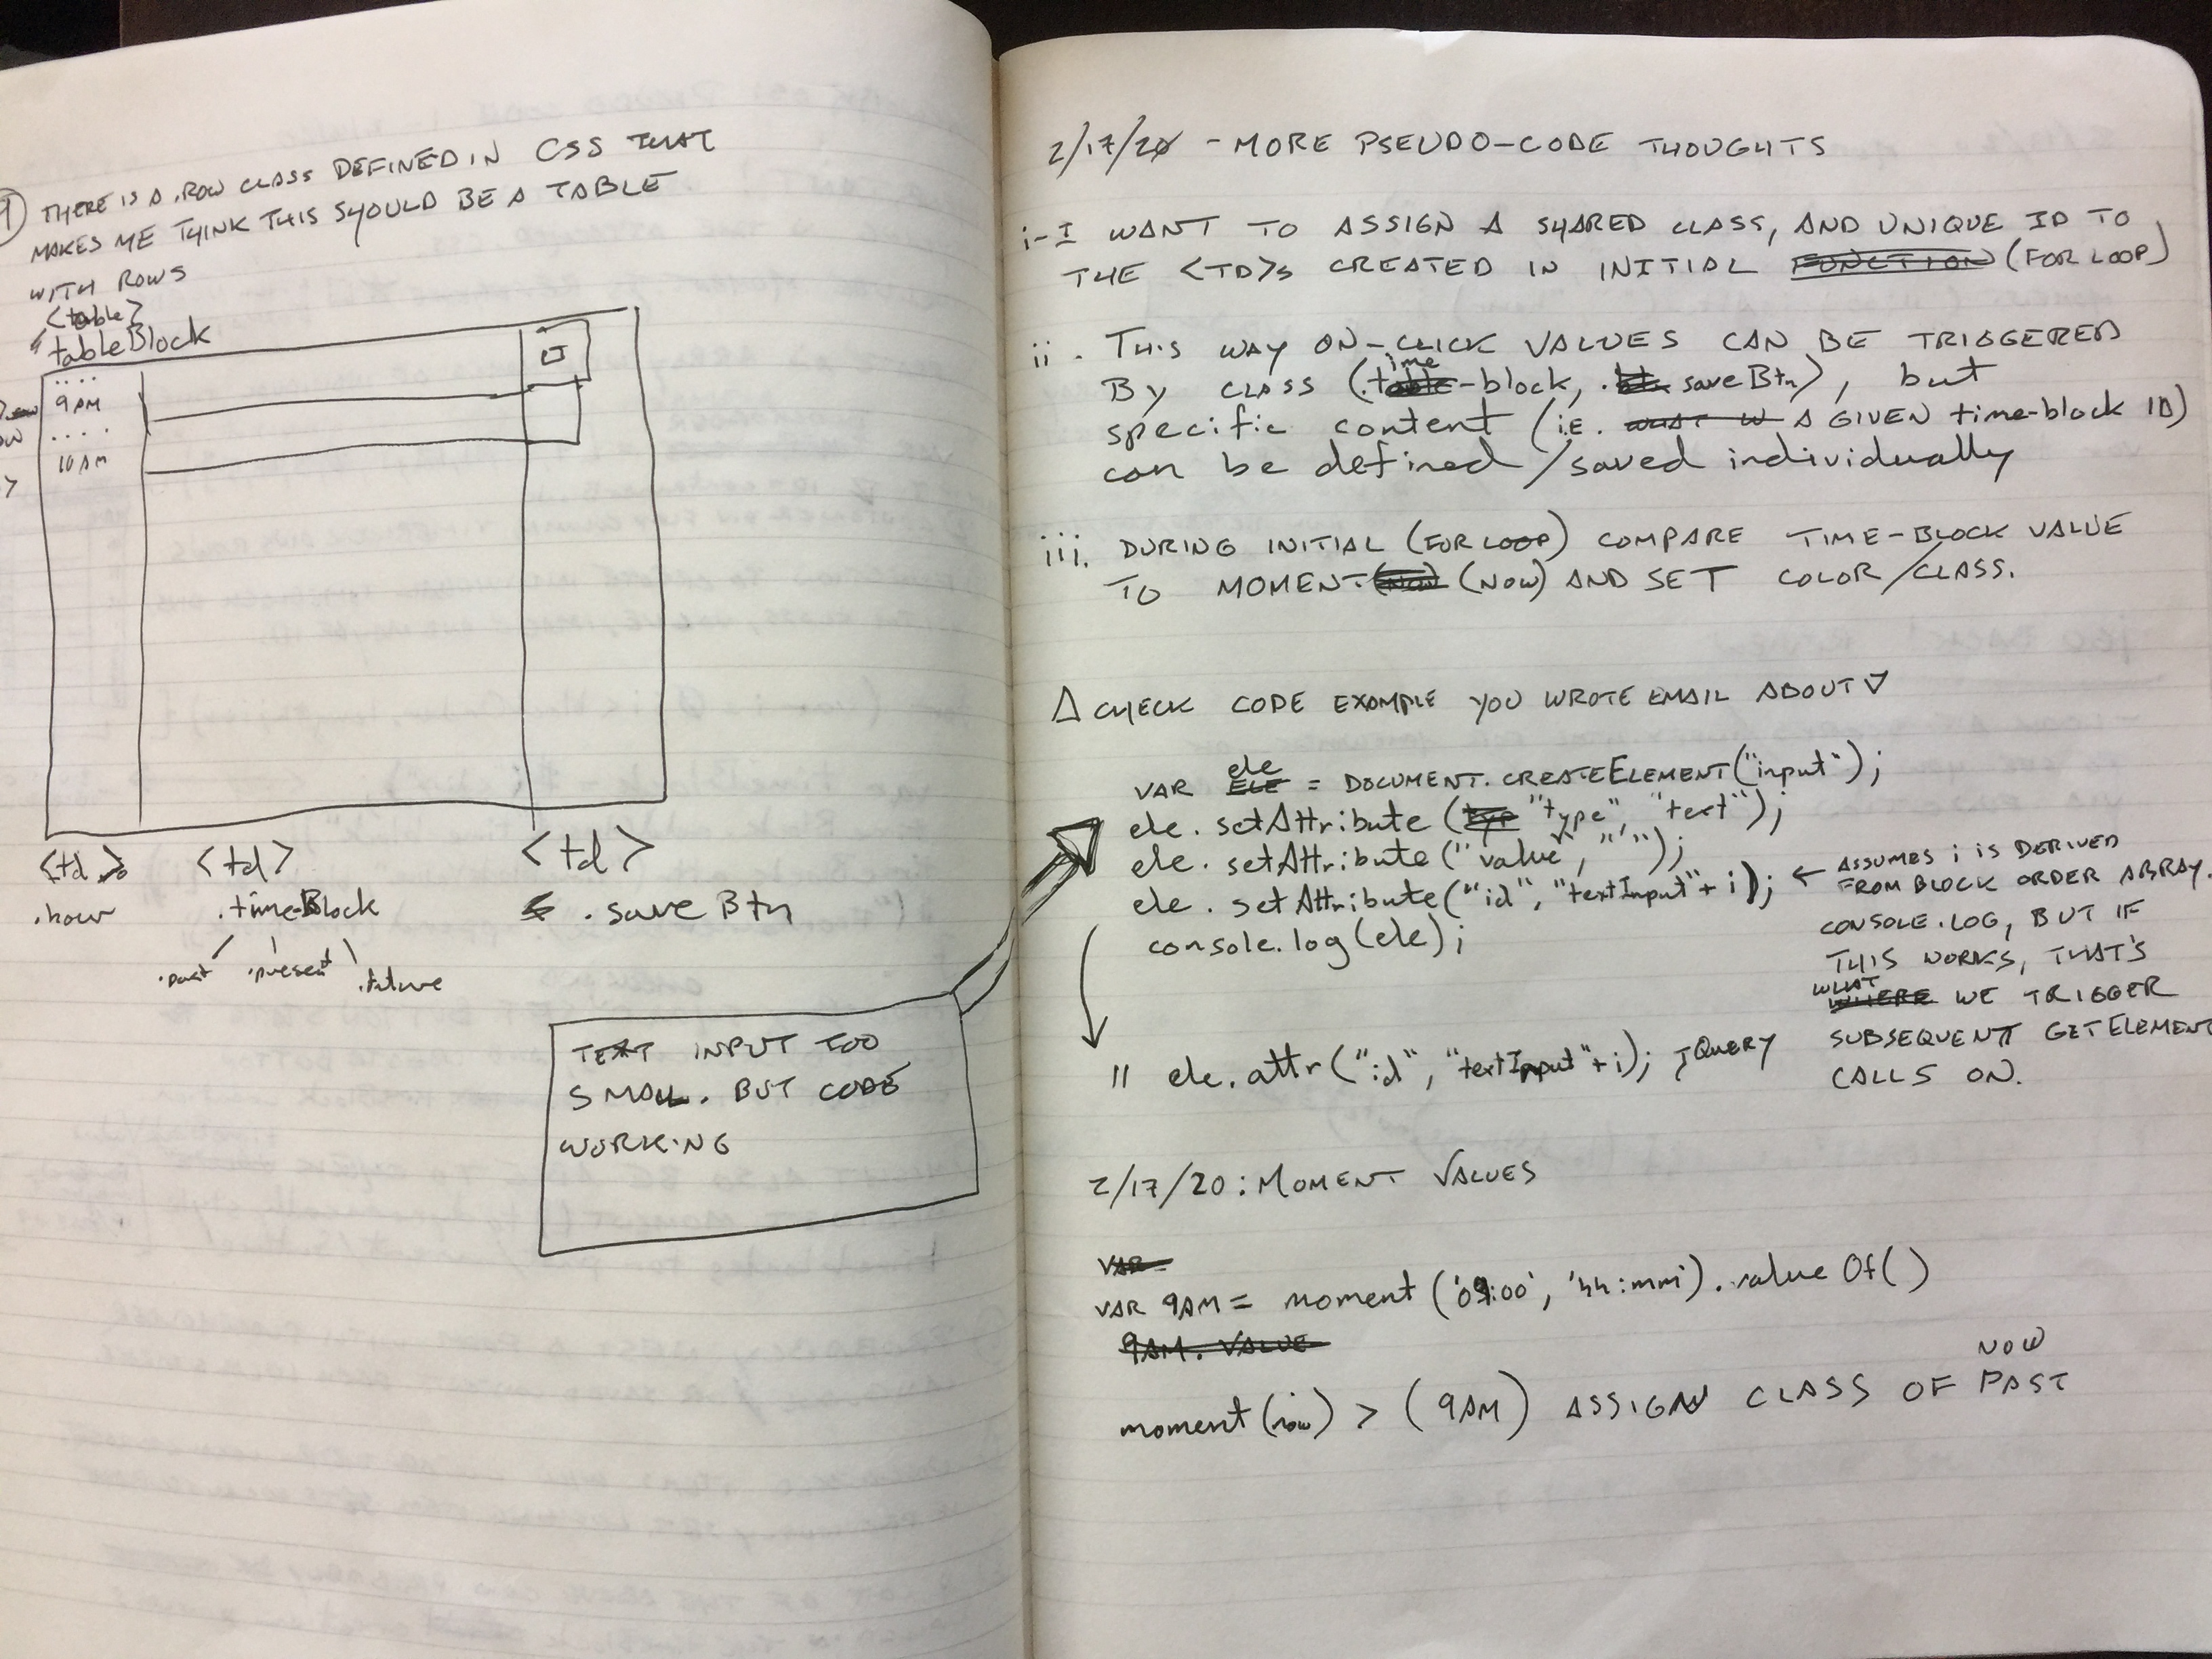 ① THERE IS A .ROW CLASS DEFINED IN CSS THAT
MAKES ME THINK THIS SHOULD BE A TABLE
WITH ROWS
<table>
tableBlock
....
9AM
....
10AM
<td>
<td>
<td>
.hour
.timeBlock
.saveBtn
.past
.present
.future
TEXT INPUT TOO
SMALL. BUT CODE
WORKING
2/17/20 - MORE PSEUDO-CODE THOUGHTS
i - I WANT TO ASSIGN A SHARED CLASS, AND UNIQUE ID TO
THE <TD>S CREATED IN INITIAL FUNCTION (FOR LOOP)
ii. THIS WAY ON-CLICK VALUES CAN BE TRIGGERED
By CLASS (.time-block, .saveBtn), but
specific content (i.e. A GIVEN time-block ID)
can be defined/saved individually
iii. DURING INITIAL (FOR LOOP) COMPARE TIME-BLOCK VALUE
TO MOMENT (NOW) AND SET COLOR/CLASS.
Δ CHECK CODE EXAMPLE YOU WROTE EMAIL ABOUT ∇
VAR ele = DOCUMENT.CREATEELEMENT("input");
ele.setAttribute("type", "text");
ele.setAttribute("value", "");
ele.setAttribute("id", "textInput" + i); ← ASSUMES i IS DERIVED
FROM BLOCK ORDER ARRAY.
console.log(ele);
CONSOLE.LOG, BUT IF
THIS WORKS, THAT'S
WHAT WE TRIGGER
SUBSEQUENT GETELEMENT
CALLS ON.
|| ele.attr("id", "textInput" + i); JQUERY
2/17/20: MOMENT VALUES
VAR
VAR 9AM = moment('09:00', 'hh:mm').valueOf()
9AM.VALUE
NOW
moment(now) > (9AM) ASSIGN CLASS OF PAST